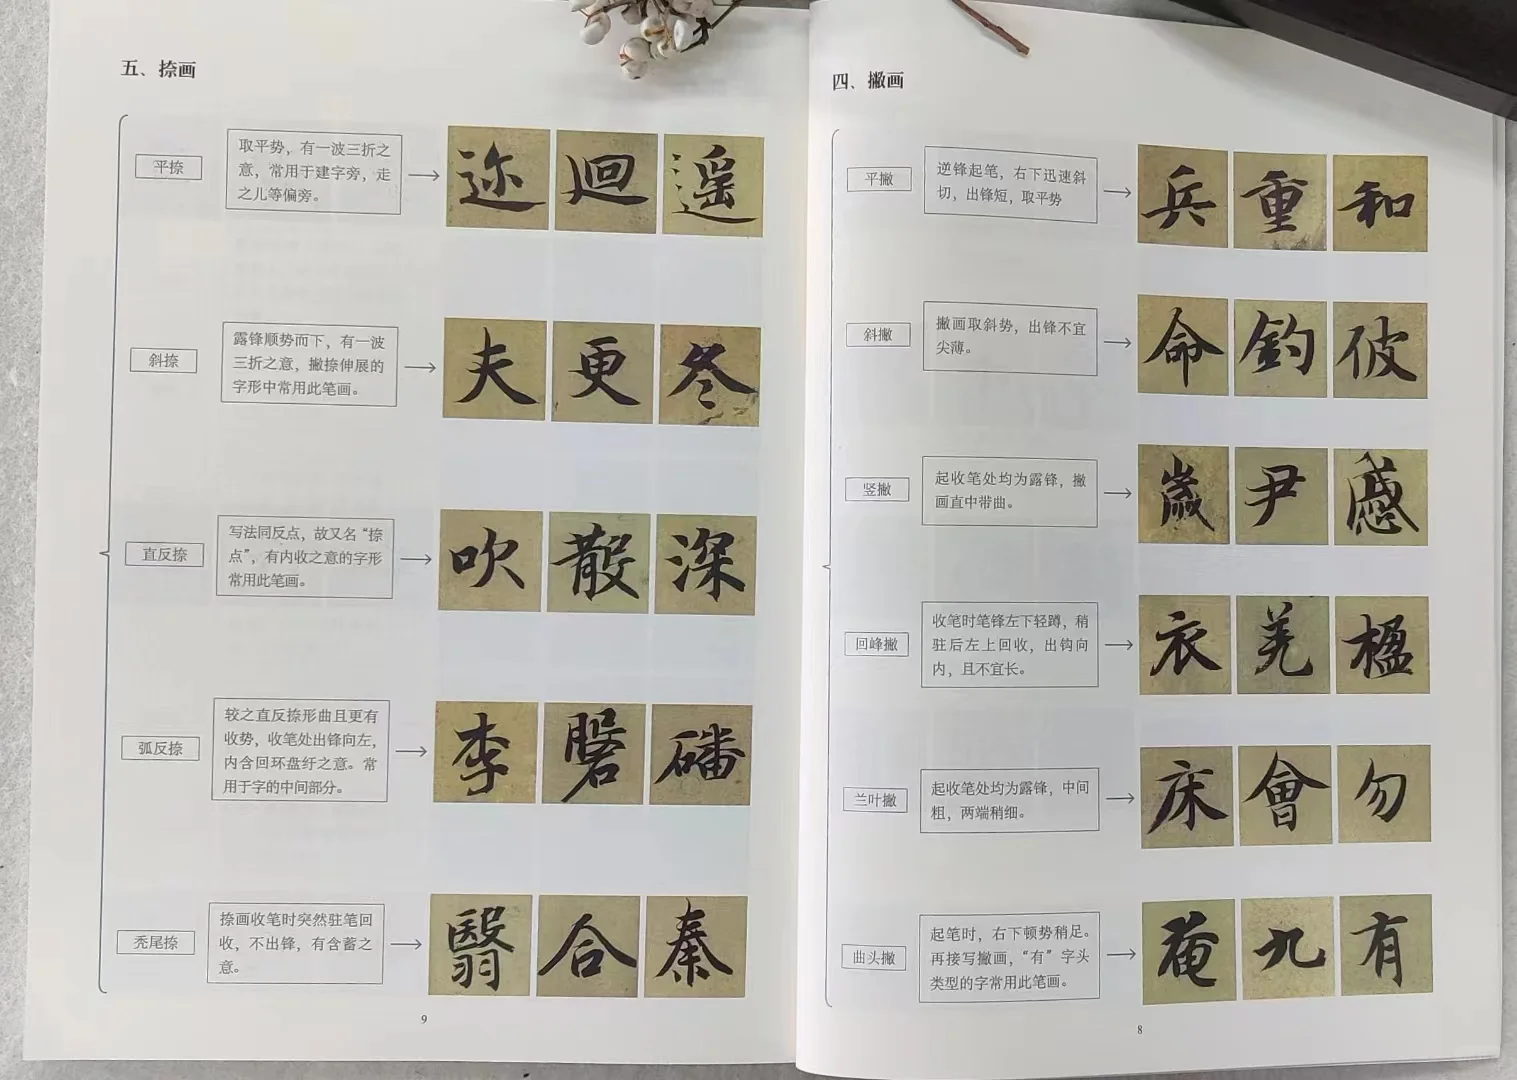 五、捺画
平捺
取平势，有一波三折之
意，常用于建字旁，走
之儿等偏旁。
迩 迴 遥
斜捺
露锋顺势而下，有一波
三折之意，撇捺伸展的
字形中常用此笔画。
夫 更 冬
直反捺
写法同反点，故又名“捺
点”，有内收之意的字形
常用此笔画。
吹 散 深
弧反捺
较之直反捺形曲且更有
收势，收笔处出锋向左，
内含回环盘纡之意。常
用于字的中间部分。
李 磻
秃尾捺
捺画收笔时突然驻笔回
收，不出锋，有含蓄之
意。
翳 合 秦
9
四、撇画
平撇
逆锋起笔，右下迅速斜
切，出锋短，取平势
兵 重 和
斜撇
撇画取斜势，出锋不宜
尖薄。
命 钓 彼
竖撇
起收笔处均为露锋，撇
画直中带曲。
岚 尹 感
回峰撇
收笔时笔锋左下轻蹲，稍
驻后左上回收，出钩向
内，且不宜长。
衣 羌 楹
兰叶撇
起收笔处均为露锋，中间
粗，两端稍细。
床 會 勿
曲头撇
起笔时，右下顿势稍足。
再接写撇画，“有”字头
类型的字常用此笔画。
奄 九 有
8